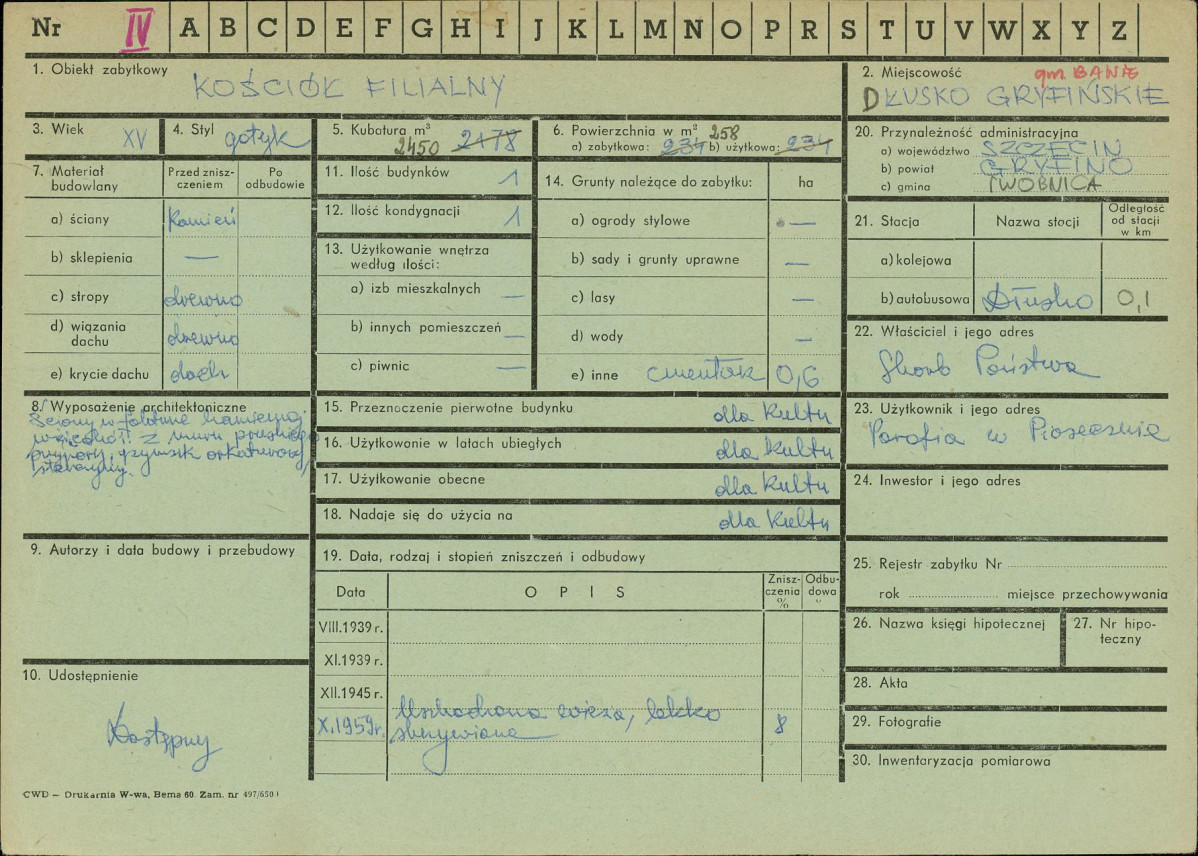 Nr IV A B C D E F G H I J K L M N O P R S T U V W X Y Z
1. Obiekt zabytkowy
KOŚCIÓŁ FILIALNY
2. Miejscowość
gm. BANIE
DŁUSKO GRYFIŃSKIE
3. Wiek XV
4. Styl gotyk
5. Kubatura m³
2450 2178
6. Powierzchnia w m² 258
a) zabytkowa: 231 b) użytkowa: 231
20. Przynależność administracyjna
a) województwo SZCZECIN
b) powiat GRYFINO
c) gmina TWOBNICA
7. Materiał budowlany
Przed znisz-
czeniem
Po
odbudowie
a) ściany kamień
b) sklepienia —
c) stropy drewno
d) wiązania
dachu drewno
e) krycie dachu dach
11. Ilość budynków 1
12. Ilość kondygnacji 1
13. Użytkowanie wnętrza
według ilości:
a) izb mieszkalnych —
b) innych pomieszczeń —
c) piwnic —
14. Grunty należące do zabytku: ha
a) ogrody stylowe —
b) sady i grunty uprawne —
c) lasy —
d) wody —
e) inne cmentarz 0,6
21. Stacja
Nazwa stacji
Odległość
od stacji
w km
a) kolejowa
b) autobusowa Dłusko 0,1
22. Właściciel i jego adres
Skarb Państwa
8. Wyposażenie architektoniczne
Ściany w
z muru
przypory, gzymsik arkadkowy
15. Przeznaczenie pierwotne budynku dla kultu
16. Użytkowanie w latach ubiegłych dla kultu
17. Użytkowanie obecne dla kultu
18. Nadaje się do użycia na dla kultu
23. Użytkownik i jego adres
Parafia w Piasecznie
24. Inwestor i jego adres
9. Autorzy i data budowy i przebudowy
10. Udostępnienie
Dostępny
19. Data, rodzaj i stopień zniszczeń i odbudowy
Data
OPIS
Znisz-
czenia
%
Odbu-
dowa
"
VIII.1939 r.
XI.1939 r.
XII.1945 r.
X.1959r. Uszkodzona wieża, lekko
skrzywiona 8
25. Rejestr zabytku Nr
rok miejsce przechowywania
26. Nazwa księgi hipotecznej
27. Nr hipo-
teczny
28. Akta
29. Fotografie
30. Inwentaryzacja pomiarowa
CWD – Drukarnia W-wa, Bema 60. Zam. nr 497/650